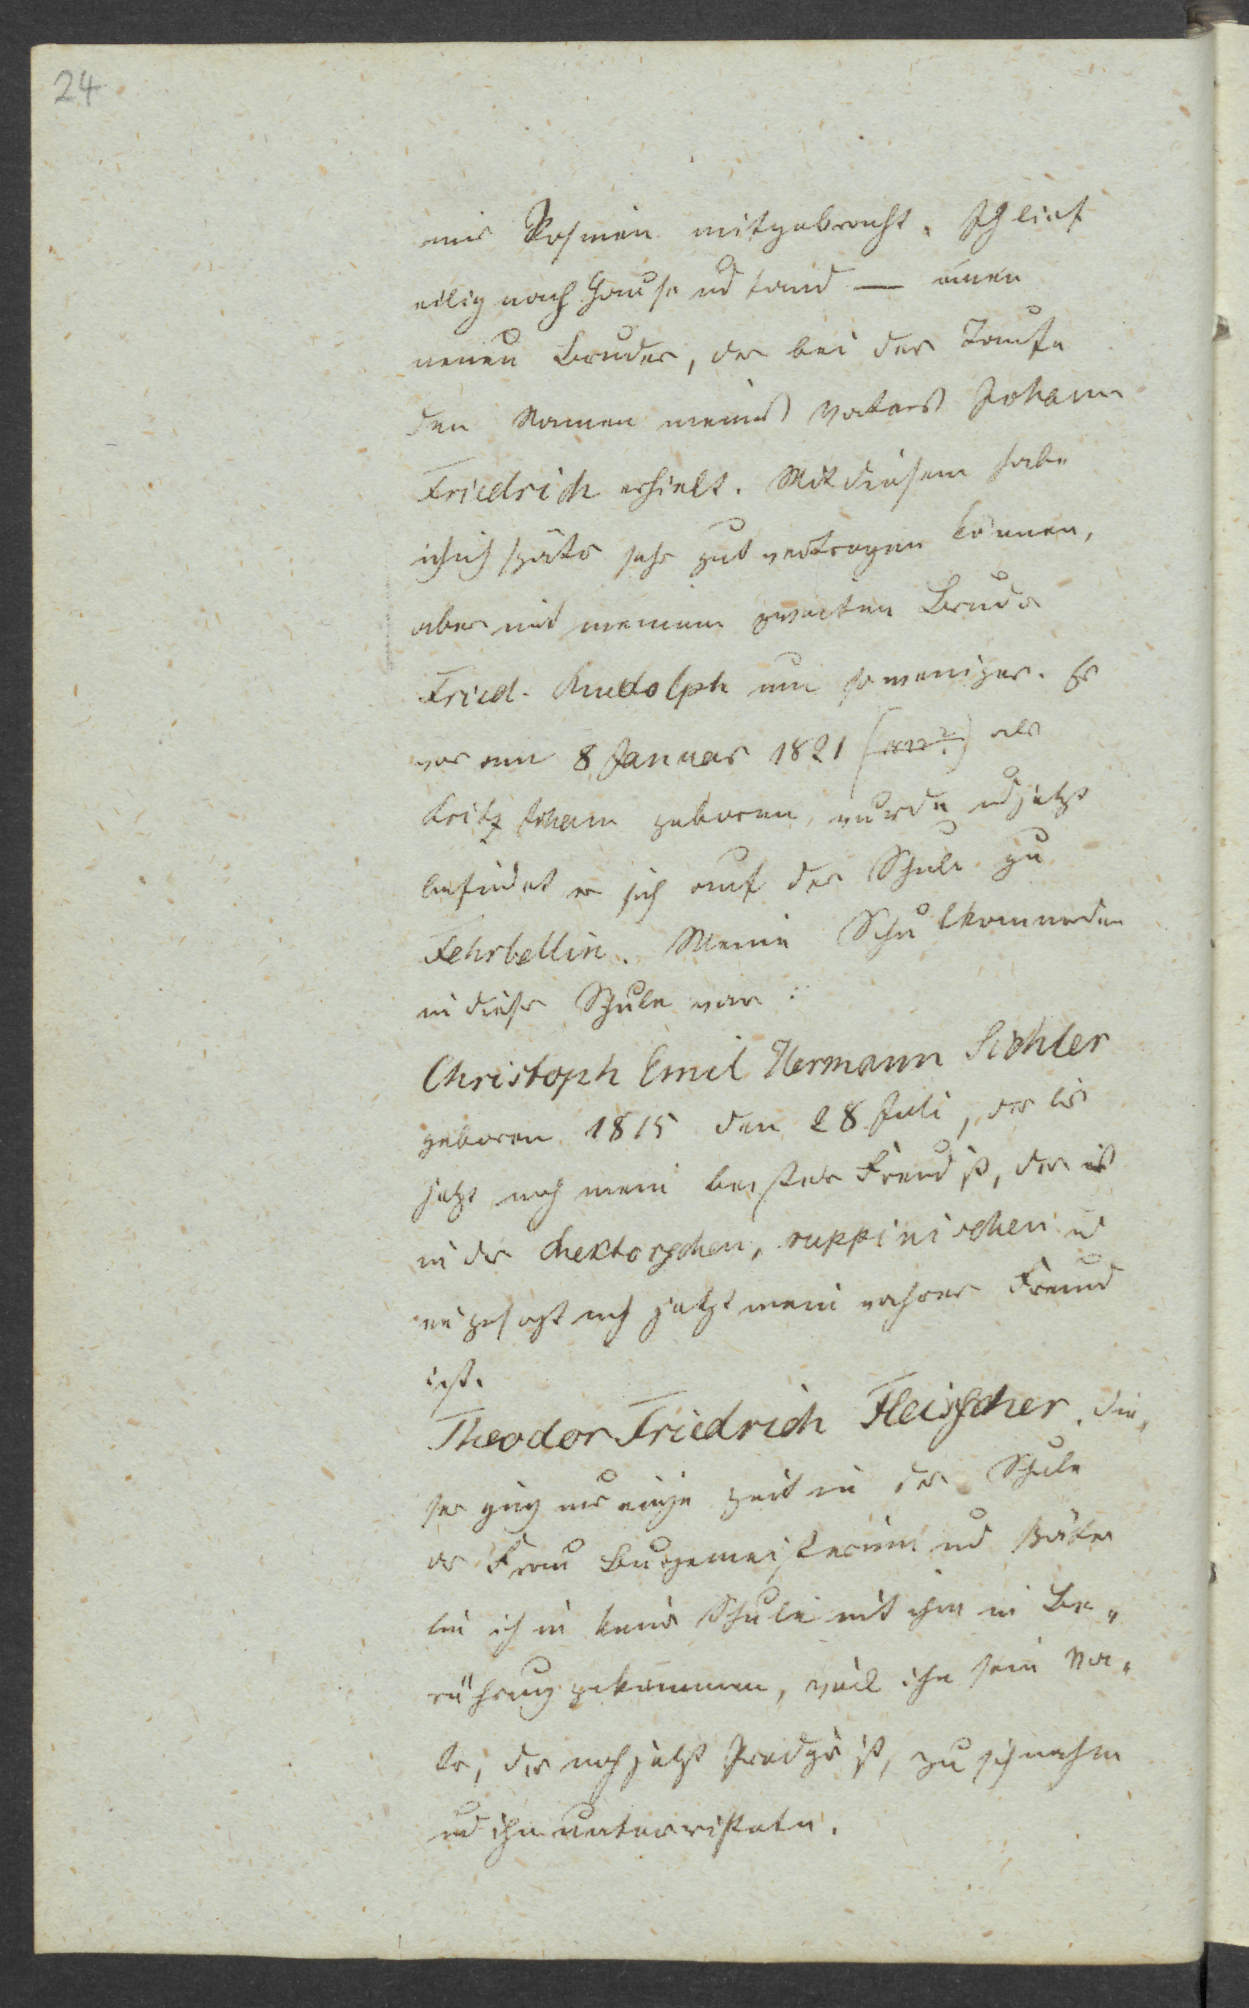 24
mir Rosinen mitgebracht. Ich lief
eilig nach Hause und fand — einen
neuen Bruder, der bei der Taufe
den Namen meines Vaters Johann
Friedrich erhielt. Mit diesem habe
ich mich später sehr gut vertragen können,
aber mit meinem zweiten Bruder
Fried. Rudolph um so weniger. Er
war am 8 Januar 1821 als
Fritz Johann geboren, wurde und jetzt
befindet er sich auf der Schule zu
Fehrbellin. Meine Schulkameraden
in dieser Schule war:
Christoph Emil Hermann Sichler
geboren 1815 den 28 Juli, der bis
jetzt noch mein bester Freund ist, der ist
in der Rektorschen, ruppinischen und
wie gesagt noch jetzt mein wahrer Freund
ist.
Theodor Friedrich Fleischer. Die-
ser ging nur einige Zeit in der Schule
der Frau Burgemeisterinn und später
bin ich in keine Schule mit ihm in Be-
rührung gekommen, weil ihn sein Va-
ter, der noch jetzt Prediger ist, zu sich nahm
und ihn unterrichtete.